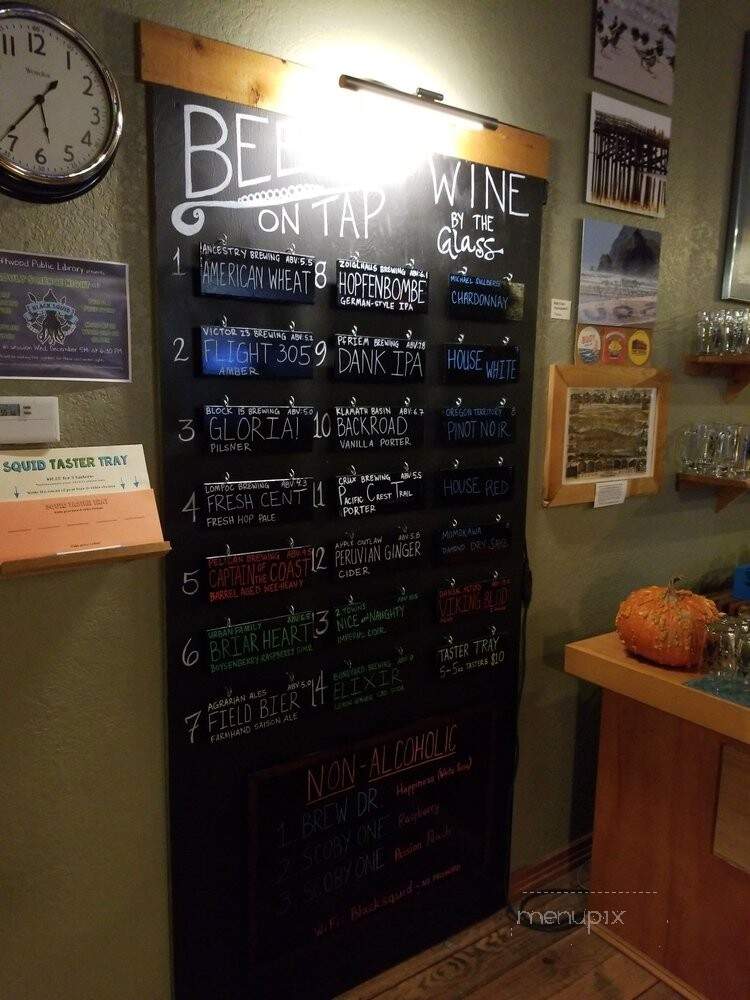 12
1
2
3
4
5
6
7
11
BEE
ON TAP
WINE
BY THE
Glass
1
ANCESTRY BREWING ABV: 5.5
AMERICAN WHEAT
2
VICTOR 23 BREWING ABV: 5.2
FLIGHT 305
AMBER
3
BLOCK 15 BREWING ABV: 5.0
GLORIA!
PILSNER
4
LOMPOC BREWING ABV: 4.3
FRESH CENT
FRESH HOP PALE
5
PELICAN BREWING
CAPTAIN OF THE COAST
BARREL AGED WEE-HEAVY
6
URBAN FAMILY
BRIAR HEART
BOYSENBERRY RASPBERRY
7
AGRARIAN ALES ABV 5.0
FIELD BIER
FARMHAND SAISON ALE
8
ZOIGLHAUS BREWING
HOPFENBOMBE
GERMAN-STYLE IPA
9
PFRIEM BREWING
DANK IPA
10
KLAMATH BASIN ABV: 6.7
BACKROAD
VANILLA PORTER
11
CRUX BREWING ABV 5.5
PACIFIC CREST TRAIL
PORTER
12
APPLE OUTLAW
PERUVIAN GINGER
CIDER
13
2 TOWNS
NICE AND NAUGHTY
IMPERIAL CIDER
14
BONEYARD BREWING
ELIXIR
CBD SODA
CHARDONNAY
HOUSE WHITE
OREGON TERRITORY
PINOT NOIR
HOUSE RED
MOMOKAWA
DIAMOND DRY SAKE
VIKING BLOD
TASTER TRAY
5-5oz TASTERS $10
NON-ALCOHOLIC
1 BREW DR. Happiness
2 SCOBY ONE Raspberry
3 SCOBY ONE Passion Peach
WiFi: Blacksquid
Public Library presents
session Wed, December 5th at 6:30 PM
SQUID TASTER TRAY
SQUID TASTER TRAY
menupix